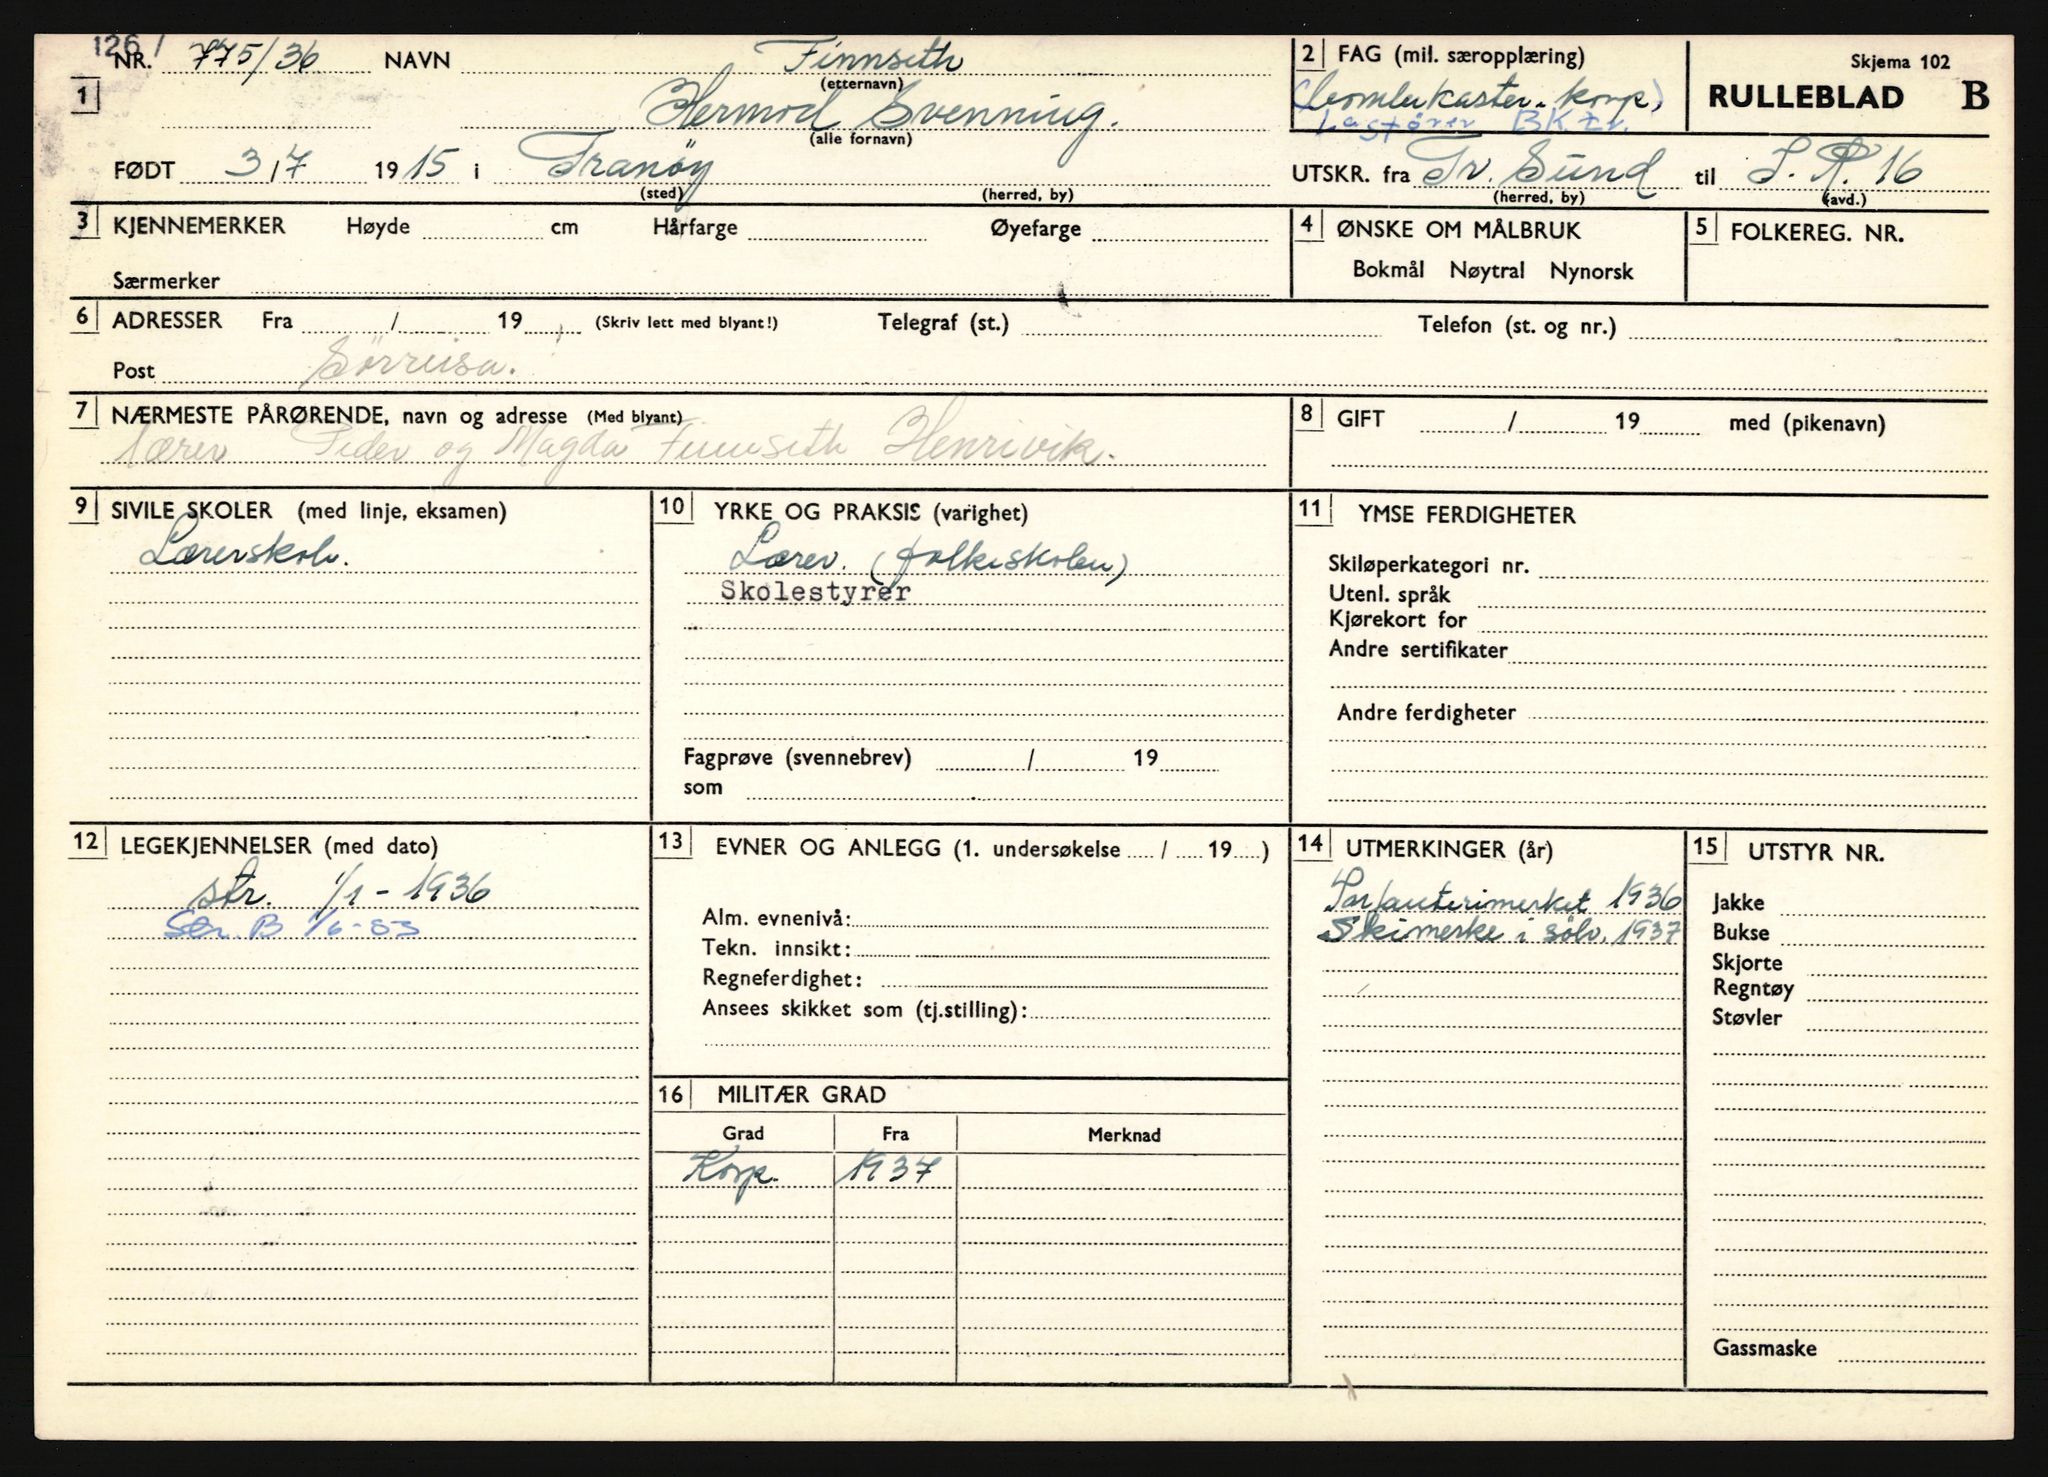 126/
NR. 775/36 NAVN Finnseth
(etternavn)
1
Hermod Svenning.
(alle fornavn)
FØDT 3/7 1915 i Tranøy
(sted) (herred, by)
2 FAG (mil. særopplæring)
(bombekaster-korp.)
Lagfører BK tr.
Skjema 102
RULLEBLAD B
UTSKR. fra Tr. Sund til I.R. 16
(herred, by) (avd.)
3 KJENNEMERKER Høyde cm Hårfarge Øyefarge
Særmerker
4 ØNSKE OM MÅLBRUK
Bokmål Nøytral Nynorsk
5 FOLKEREG. NR.
6 ADRESSER Fra / 19 (Skriv lett med blyant!) Telegraf (st.) Telefon (st. og nr.)
Post Sörreisa.
7 NÆRMESTE PÅRØRENDE, navn og adresse (Med blyant)
lærer Peder og Magda Finnseth Henrivik.
8 GIFT / 19 med (pikenavn)
9 SIVILE SKOLER (med linje, eksamen)
Lærerskole.
10 YRKE OG PRAKSIS (varighet)
Lærer. (folkeskolen)
Skolestyrer
Fagprøve (svennebrev) / 19
som
11 YMSE FERDIGHETER
Skiløperkategori nr.
Utenl. språk
Kjørekort for
Andre sertifikater
Andre ferdigheter
12 LEGEKJENNELSER (med dato)
str. 1/1-1936
Str. B 1/6-53
13 EVNER OG ANLEGG (1. undersøkelse / 19 )
Alm. evnenivå:
Tekn. innsikt:
Regneferdighet:
Ansees skikket som (tj.stilling):
16 MILITÆR GRAD
Grad Fra Merknad
Korp. 1937
14 UTMERKINGER (år)
Infanterimerket 1936
Skimerke i sölv. 1937
15 UTSTYR NR.
Jakke
Bukse
Skjorte
Regntøy
Støvler
Gassmaske